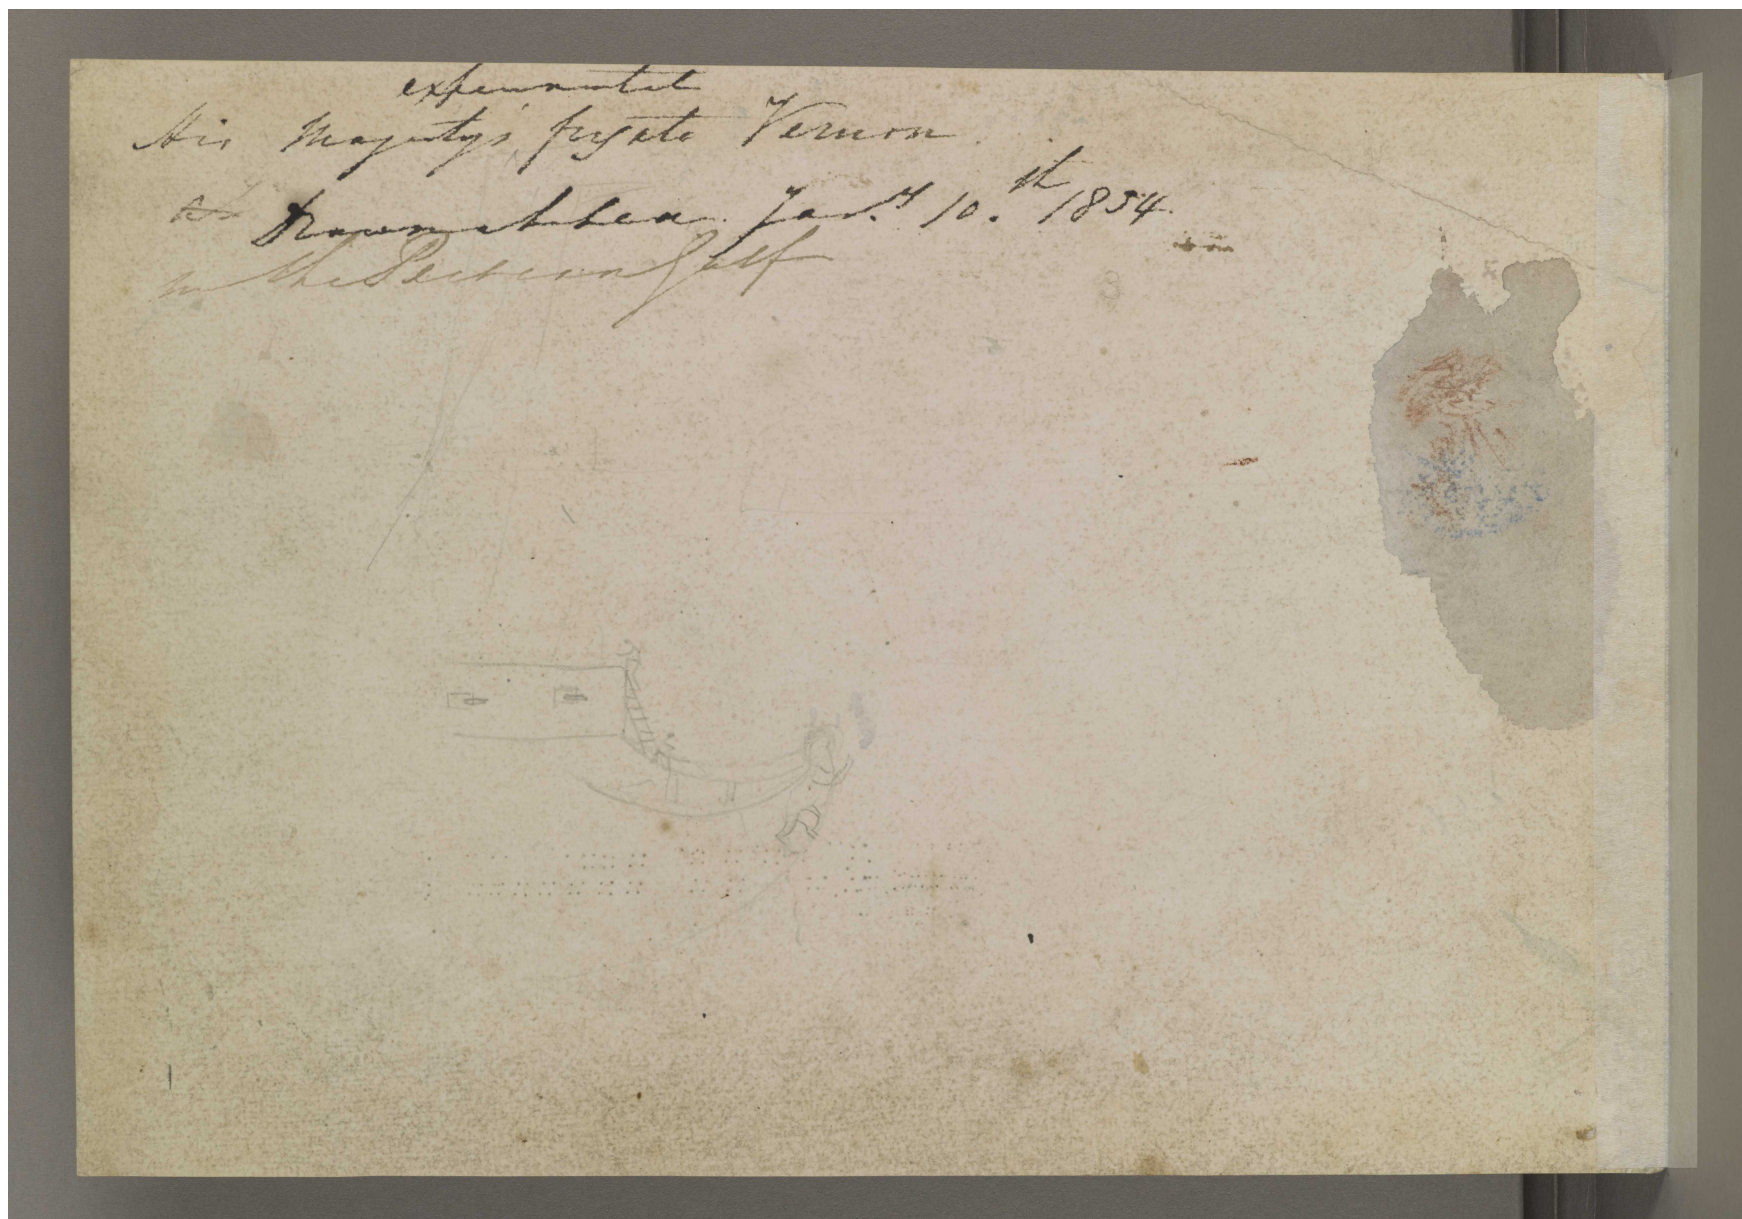 experimental
His Majesty's frigate Vernon
at Drawn at Sea. Jan.y 10.th 1854.
in the Persian Gulf